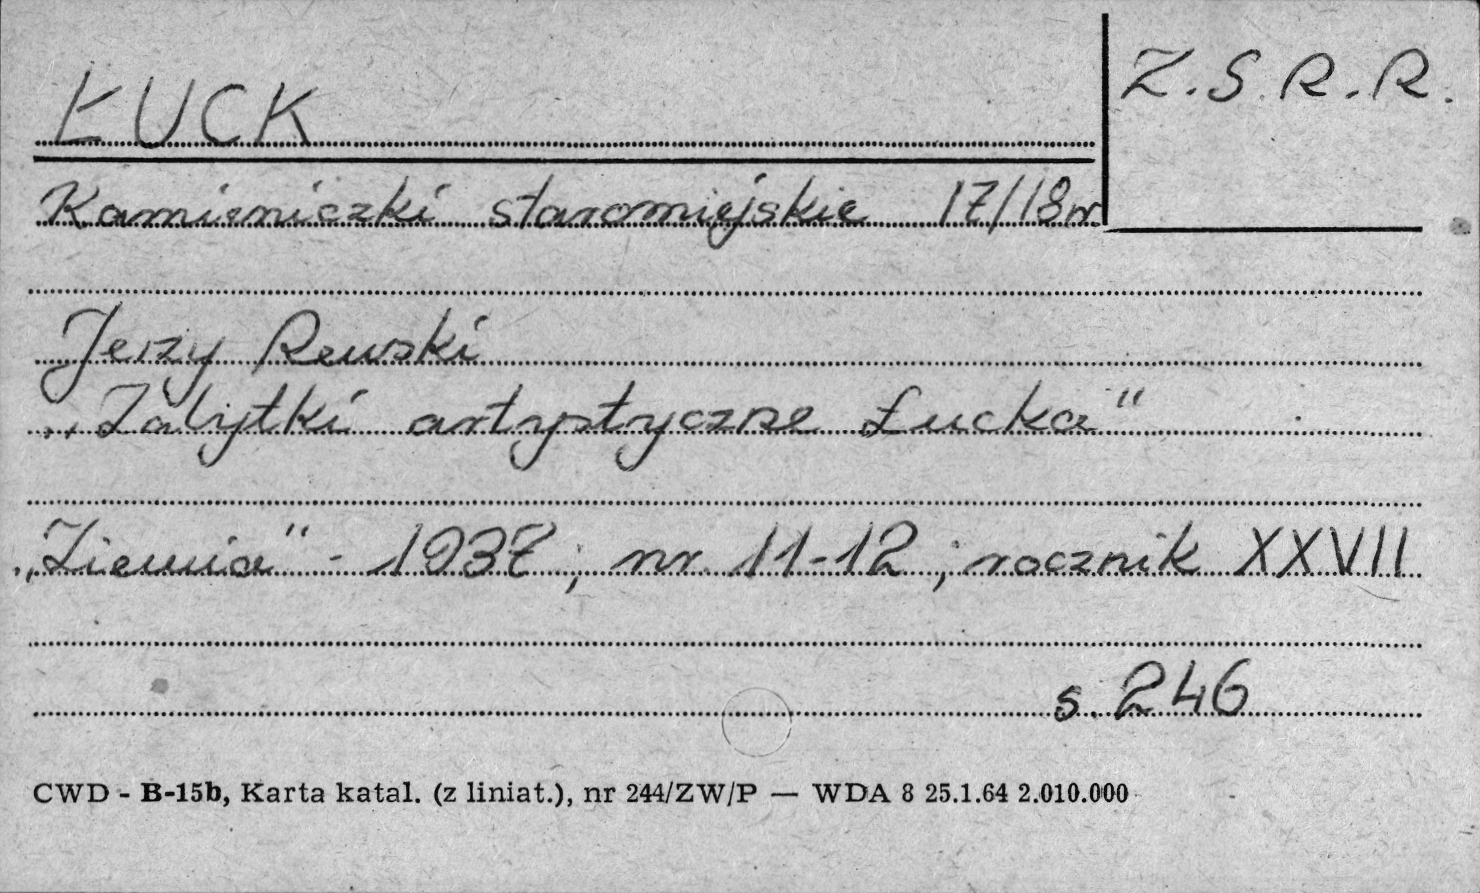 ŁUCK
Z.S.R.R.
Kamieniczki staromiejskie 17/18 w
Jerzy Rewski
„Zabytki artystyczne Łucka"
„Ziemia" - 1937; nr. 11-12; rocznik XXVII
s. 246
CWD - B-15b, Karta katal. (z liniat.), nr 244/ZW/P — WDA 8 25.1.64 2.010.000